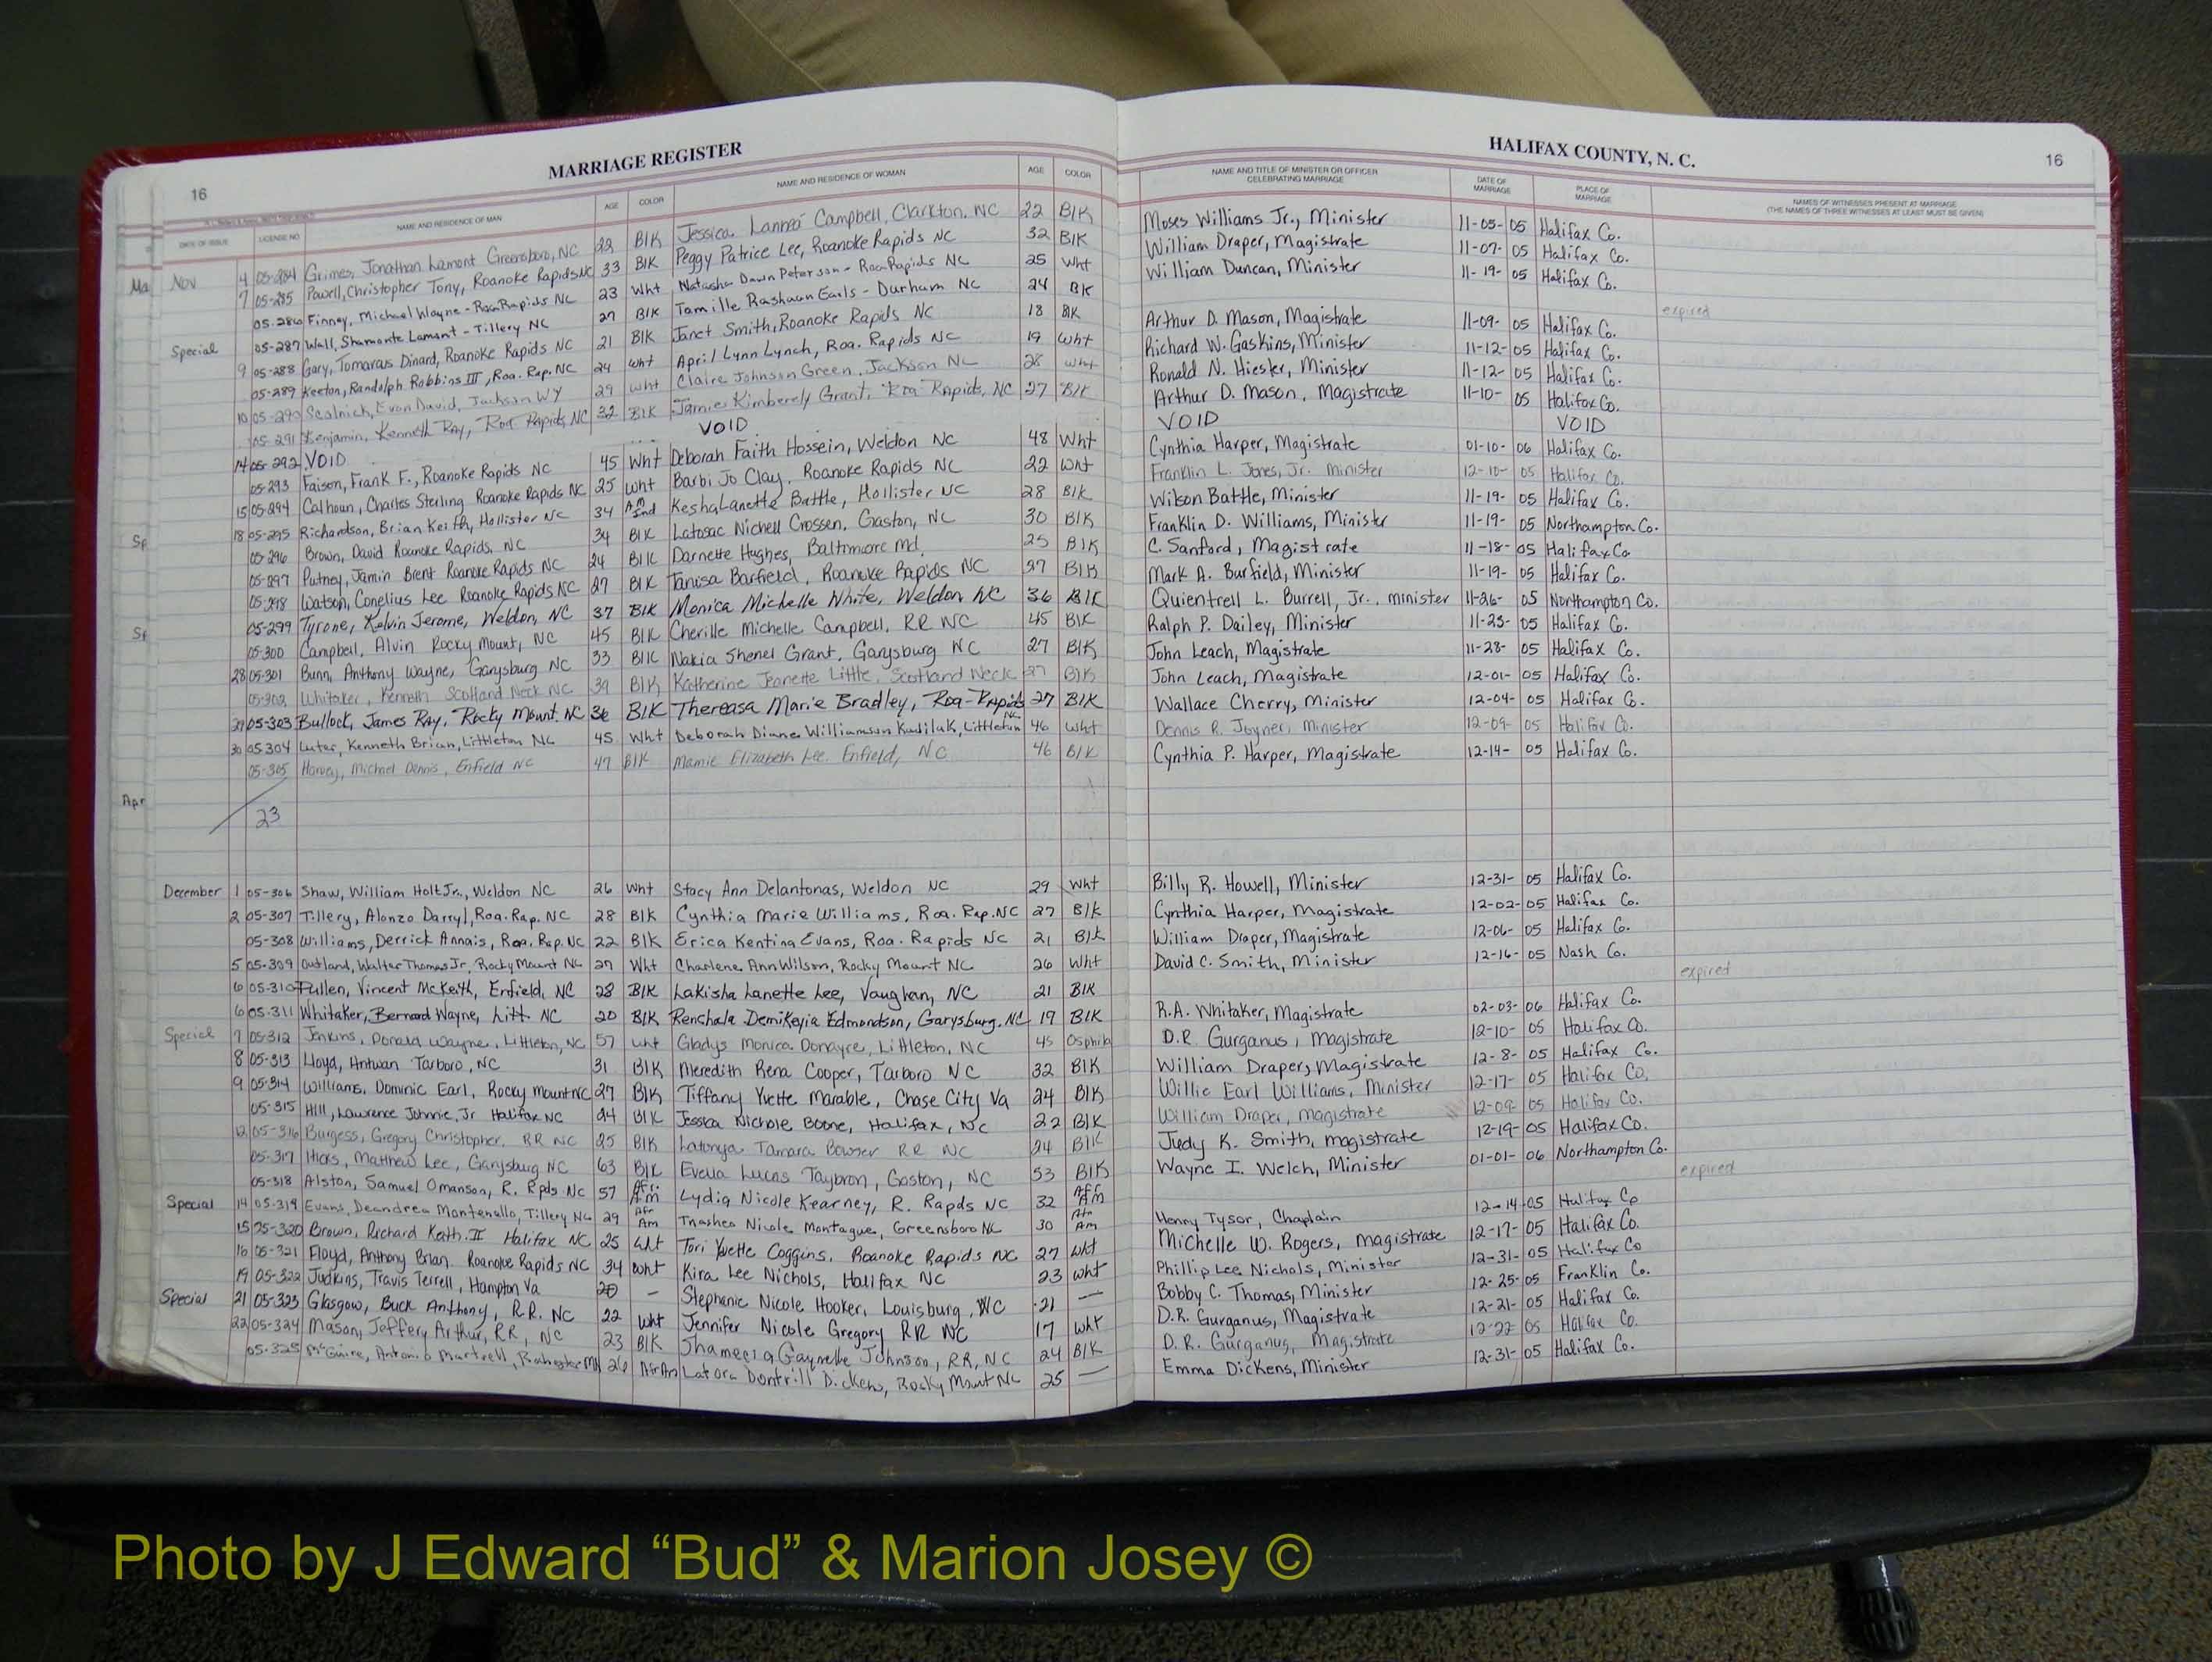 MARRIAGE REGISTER
16
DATE OF ISSUE LICENSE NO NAME AND RESIDENCE OF MAN AGE COLOR NAME AND RESIDENCE OF WOMAN AGE COLOR
Nov 4 05-284 Grimes, Jonathan Lamont Greensboro, NC 22 Blk Jessica Lannea Campbell, Clarkton, NC 22 Blk
7 05-285 Powell, Christopher Tony, Roanoke Rapids NC 33 Blk Peggy Patrice Lee, Roanoke Rapids NC 32 Blk
05-286 Finney, Michael Wayne - Roa Rapids NC 23 Wht Natasha Dawn Peterson - Roa Rapids NC 25 Wht
Special 05-287 Wall, Shamonte Lamont - Tillery NC 27 Blk Tamille Rashawn Earls - Durham NC 24 Blk
9 05-288 Gary, Tomaraus Dinard, Roanoke Rapids NC 21 Blk Janet Smith, Roanoke Rapids NC 18 Blk
05-289 Keeton, Randolph Robbins III, Roa. Rap. NC 24 Wht April Lynn Lynch, Roa. Rapids NC 19 Wht
10 05-290 Scolnick, Evan David, Jackson WY 29 Wht Claire Johnson Green, Jackson NC 28 Wht
05-291 Benjamin, Kenneth Ray, Roa Rapids, NC 32 Blk Jamie Kimberely Grant, Roa Rapids, NC 27 Blk
14 05-292 VOID VOID
05-293 Faison, Frank F., Roanoke Rapids NC 45 Wht Deborah Faith Hossein, Weldon NC 48 Wht
15 05-294 Calhoun, Charles Sterling Roanoke Rapids NC 25 Wht Barbi Jo Clay, Roanoke Rapids NC 22 Wht
18 05-295 Richardson, Brian Keith, Hollister NC 34 Am Ind Kesha Lanette Battle, Hollister NC 28 Blk
05-296 Brown, David Roanoke Rapids, NC 34 Blk Latosac Nichell Crossen, Gaston, NC 30 Blk
05-297 Putney, Jamin Brent Roanoke Rapids NC 24 Blk Darnette Hughes, Baltimore Md. 25 Blk
05-298 Watson, Conelius Lee Roanoke Rapids NC 27 Blk Tanisa Barfield, Roanoke Rapids NC 27 Blk
05-299 Tyrone, Kelvin Jerome, Weldon, NC 37 Blk Monica Michelle White, Weldon NC 36 Blk
05-300 Campbell, Alvin Rocky Mount, NC 45 Blk Cherille Michelle Campbell, RR NC 45 Blk
28 05-301 Bunn, Anthony Wayne, Garysburg NC 33 Blk Nakia Shenel Grant, Garysburg NC 27 Blk
05-302 Whitaker, Kenneth Scotland Neck NC 39 Blk Katherine Jeanette Little, Scotland Neck 27 Blk
29 05-303 Bullock, James Ray, Rocky Mount, NC 36 Blk Thereasa Marie Bradley, Roa-Rapids NC 27 Blk
30 05-304 Luter, Kenneth Brian, Littleton NC 45 Wht Deborah Diane Williamson Kudilak, Littleton 46 Wht
05-305 Harvey, Michael Dennis, Enfield NC 47 Blk Mamie Elizabeth Lee, Enfield, NC 46 Blk
23
December 1 05-306 Shaw, William Holt Jr., Weldon NC 26 Wht Stacy Ann Delantonas, Weldon NC 29 Wht
2 05-307 Tillery, Alonzo Darryl, Roa. Rap. NC 28 Blk Cynthia Marie Williams, Roa. Rap. NC 27 Blk
05-308 Williams, Derrick Annais, Roa. Rap. NC 22 Blk Erica Kentina Evans, Roa. Rapids NC 21 Blk
5 05-309 Outland, Walter Thomas Jr, Rocky Mount NC 27 Wht Charlene Ann Wilson, Rocky Mount NC 26 Wht
6 05-310 Pullen, Vincent McKeith, Enfield, NC 28 Blk Lakisha Lanette Lee, Vaughan, NC 21 Blk
6 05-311 Whitaker, Bernard Wayne, Litt. NC 20 Blk Renshala Demikeyia Edmondson, Garysburg, NC 19 Blk
Special 7 05-312 Jenkins, Donald Wayne, Littleton, NC 57 Wht Gladys Monica Donayre, Littleton, NC 45
8 05-313 Lloyd, Antwan Tarboro, NC 31 Blk Meredith Rena Cooper, Tarboro NC 32 Blk
9 05-314 Williams, Dominic Earl, Rocky Mount NC 27 Blk Tiffany Yvette Marable, Chase City Va 24 Blk
05-315 Hill, Lawrence Johnie, Jr Halifax NC 24 Blk Jessica Nichole Boone, Halifax, NC 22 Blk
12 05-316 Burgess, Gregory Christopher, RR NC 25 Blk Latonya Tamara Bowser RR NC 24 Blk
05-317 Hicks, Matthew Lee, Garysburg NC 63 Blk Evelia Lucas Taybron, Gaston, NC 53 Blk
05-318 Alston, Samuel Omanson, R. Rpds. NC 57 Afr Am Lydia Nicole Kearney, R. Rapds NC 32 Afr Am
Special 14 05-319 Evans, Deandrea Montenello, Tillery NC 29 Afr Am Trashea Nicole Montague, Greensboro NC 30 Afr Am
15 05-320 Brown, Richard Keith II Halifax NC 25 Wht Tori Yvette Coggins, Roanoke Rapids NC 27 Wht
16 05-321 Floyd, Anthony Brian Roanoke Rapids NC 34 Wht Kira Lee Nichols, Halifax NC 23 Wht
19 05-322 Judkins, Travis Terrell, Hampton Va 20 — Stephanie Nicole Hooker, Louisburg, NC 21 —
Special 21 05-323 Glasgow, Buck Anthony, R.R. NC 22 Wht Jennifer Nicole Gregory RR NC 17 Wht
22 05-324 Mason, Jeffery Arthur, RR, NC 23 Blk Shameeia Gaynelle Johnson, RR, NC 24 Blk
05-325 McGuire, Antonio Martrell, Rochester MN 26 AfrAm Latora Dontrill Dickens, Rocky Mount NC 25 —
HALIFAX COUNTY, N. C.
16
NAME AND TITLE OF MINISTER OR OFFICER CELEBRATING MARRIAGE DATE OF MARRIAGE PLACE OF MARRIAGE NAMES OF WITNESSES PRESENT AT MARRIAGE
(THE NAMES OF THREE WITNESSES AT LEAST MUST BE GIVEN)
Moses Williams Jr., Minister 11-05-05 Halifax Co.
William Draper, Magistrate 11-07-05 Halifax Co.
William Duncan, Minister 11-19-05 Halifax Co.
expired
Arthur D. Mason, Magistrate 11-09-05 Halifax Co.
Richard W. Gaskins, Minister 11-12-05 Halifax Co.
Ronald N. Hiester, Minister 11-12-05 Halifax Co.
Arthur D. Mason, Magistrate 11-10-05 Halifax Co.
VOID VOID
Cynthia Harper, Magistrate 01-10-06 Halifax Co.
Franklin L. Jones, Jr. Minister 12-10-05 Halifax Co.
Wilson Battle, Minister 11-19-05 Halifax Co.
Franklin D. Williams, Minister 11-19-05 Northampton Co.
C. Sanford, Magistrate 11-18-05 Halifax Co
Mark A. Burfield, Minister 11-19-05 Halifax Co.
Quientrell L. Burrell, Jr., minister 11-26-05 Northampton Co.
Ralph P. Dailey, Minister 11-25-05 Halifax Co.
John Leach, Magistrate 11-28-05 Halifax Co.
John Leach, Magistrate 12-01-05 Halifax Co.
Wallace Cherry, Minister 12-04-05 Halifax Co.
Dennis R. Joyner, Minister 12-09-05 Halifax Co.
Cynthia P. Harper, Magistrate 12-14-05 Halifax Co.
Billy R. Howell, Minister 12-31-05 Halifax Co.
Cynthia Harper, Magistrate 12-02-05 Halifax Co.
William Draper, Magistrate 12-06-05 Halifax Co.
David C. Smith, Minister 12-16-05 Nash Co.
expired
R.A. Whitaker, Magistrate 02-03-06 Halifax Co.
D.R. Gurganus, Magistrate 12-10-05 Halifax Co.
William Draper, Magistrate 12-8-05 Halifax Co.
Willie Earl Williams, Minister 12-17-05 Halifax Co.
William Draper, magistrate 12-09-05 Halifax Co.
Judy K. Smith, magistrate 12-19-05 Halifax Co.
Wayne I. Welch, Minister 01-01-06 Northampton Co.
expired
Henry Tysor, Chaplain 12-14-05 Halifax Co
Michelle W. Rogers, Magistrate 12-17-05 Halifax Co.
Phillip Lee Nichols, Minister 12-31-05 Halifax Co
Bobby C. Thomas, Minister 12-25-05 Franklin Co.
D.R. Gurganus, Magistrate 12-21-05 Halifax Co.
D.R. Gurganus, Magistrate 12-22-05 Halifax Co.
Emma Dickens, Minister 12-31-05 Halifax Co.
Ma
Sp
Sp
Apr
Photo by J Edward “Bud” & Marion Josey ©